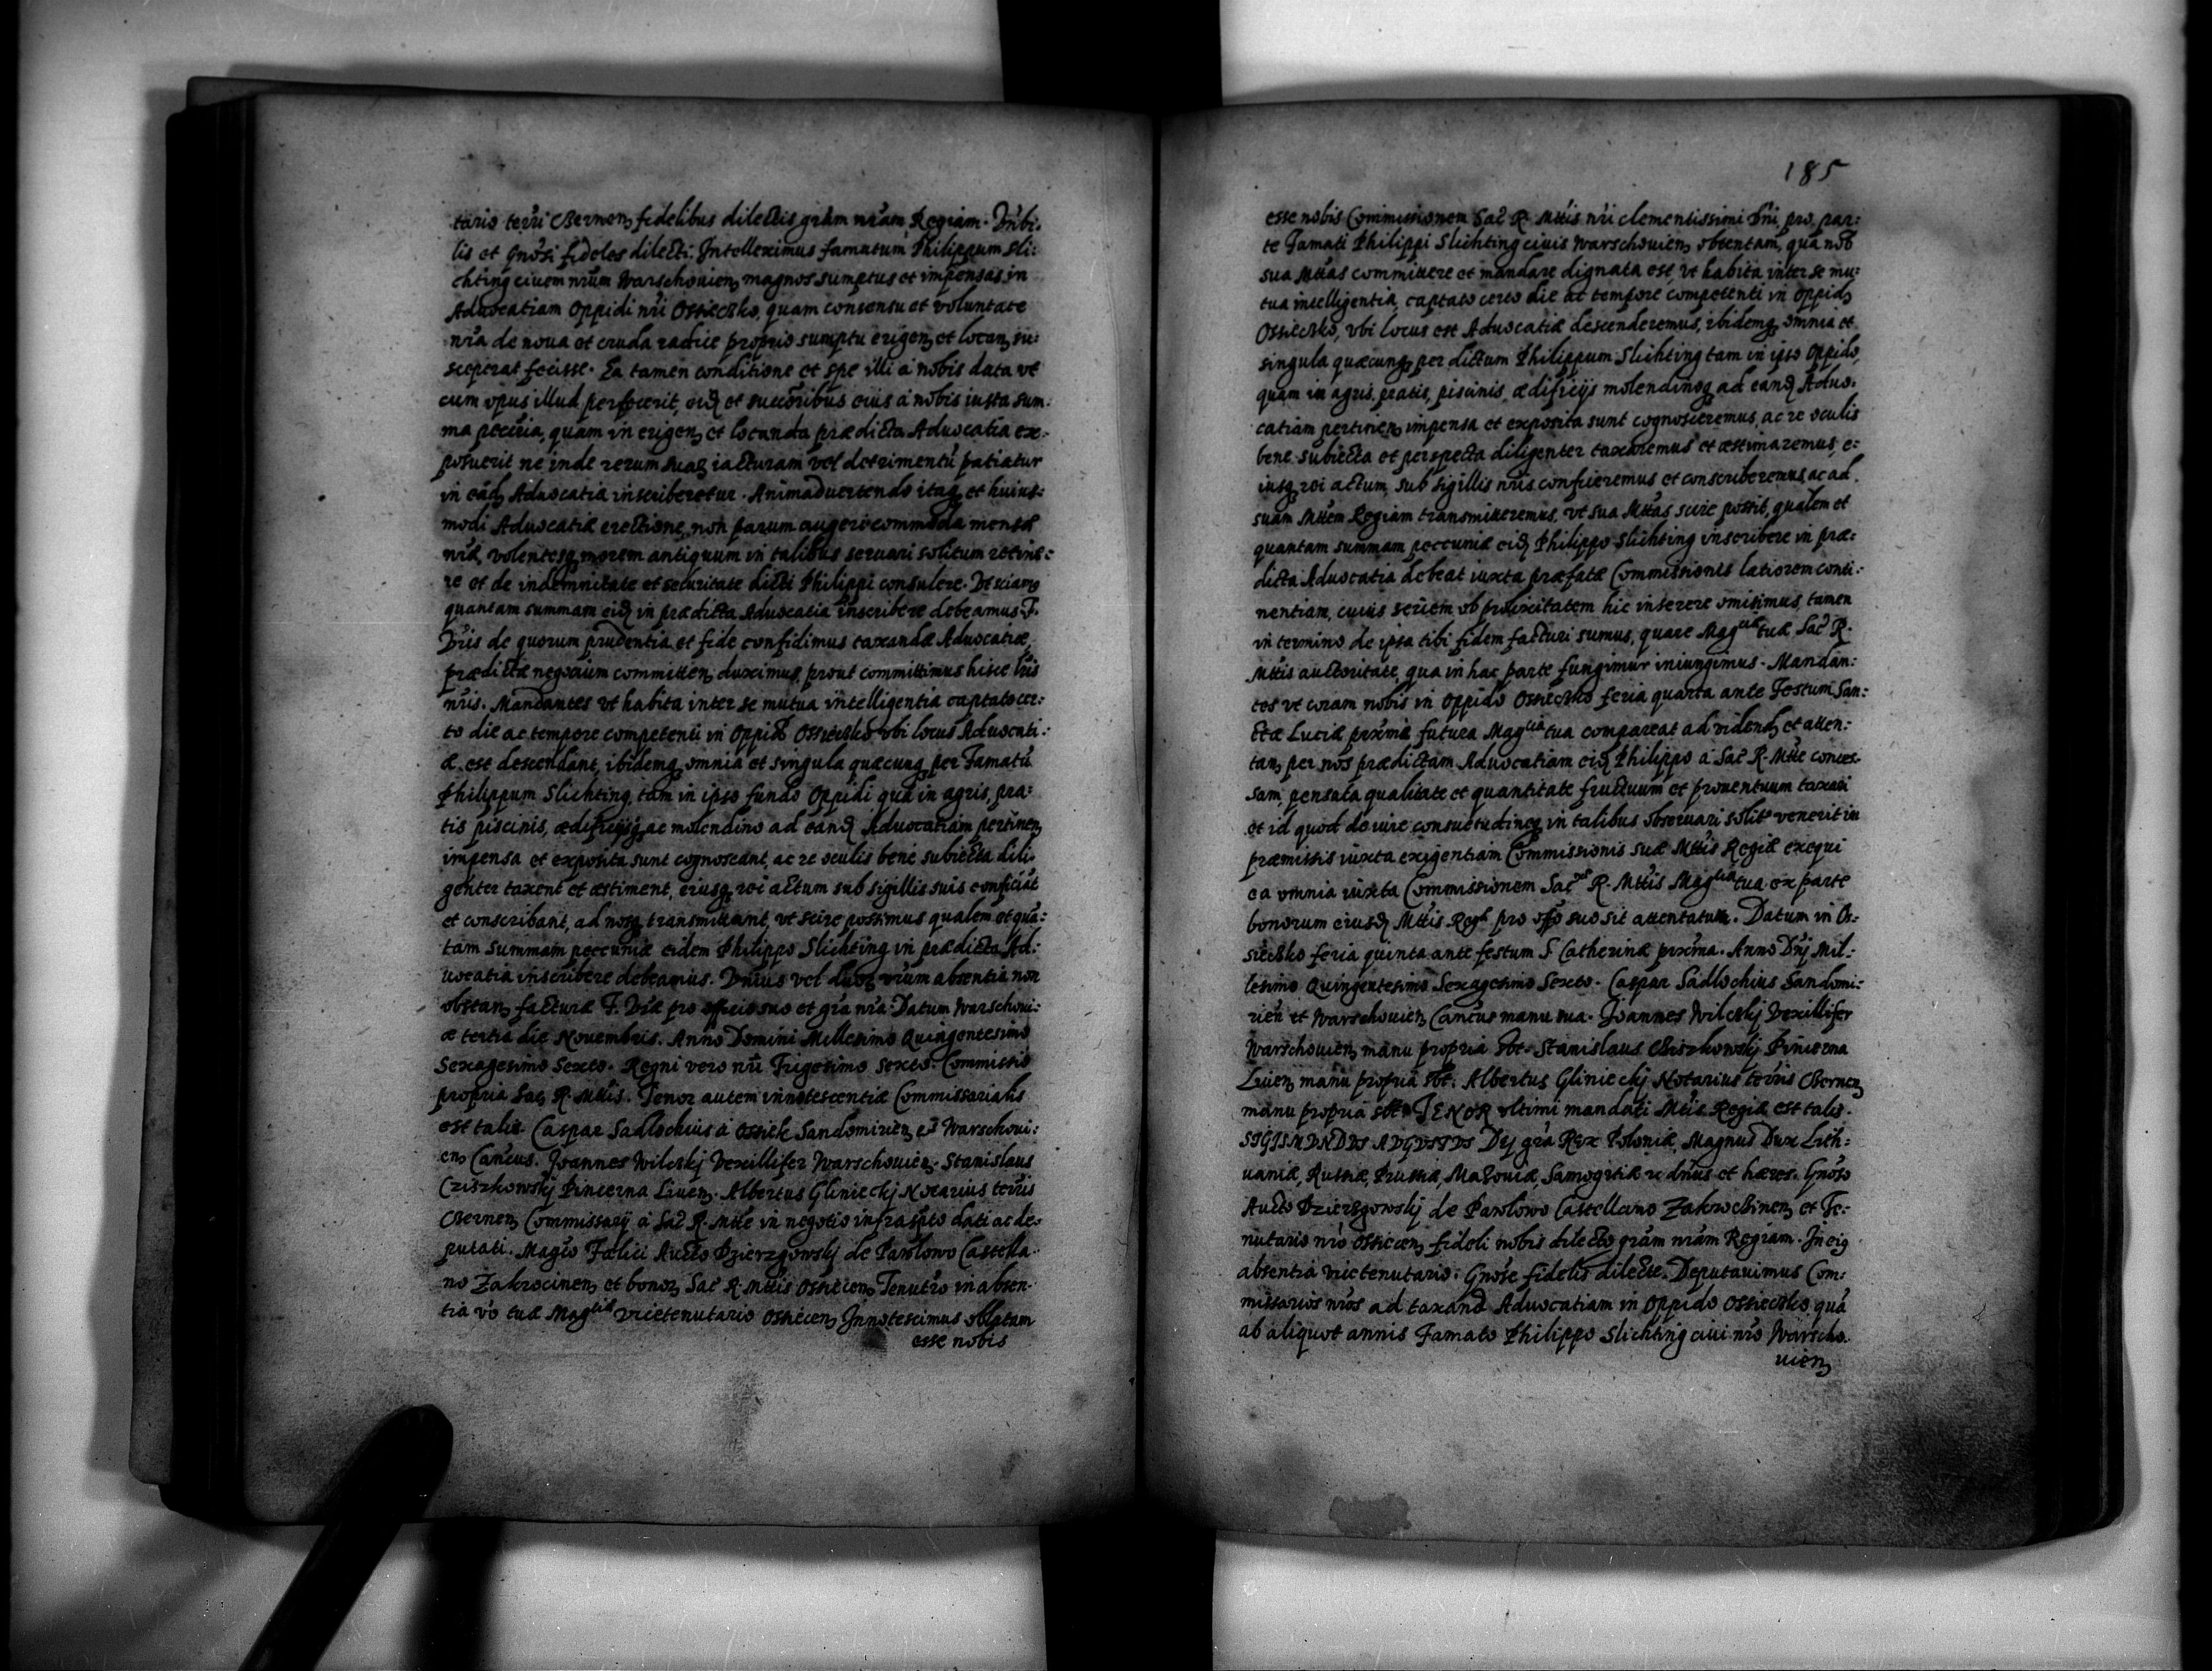 tario terrı Cernen, fidelibus dilectis grãm nrãm Regiam. Vnbi:
lis et Gnosi fideles dilecti. Intelleximus famatum Philippum Sli:
chting ciuem nrũm Warschouien, magnos sumptus et impensas in
Aduocatiam Oppidi nri Ossieczko, quam consensu et voluntate
nra de noua et cruda radice proprio sumptu erigen et locan, su:
sceperat fecisse. Ea tamen conditione et spe illi à nobis data vt
cum opus illud perfecerit, eidẽ et successoribus eius à nobis iusta sum:
ma peccnia, quam in erigen, et locanda prædicta Aduocatia ex:
posuerit ne inde rerum suaꝝ iacturam vel detrimentũ patiatur
in eãd Aduocatia inscriberetur. Animaduertendo itaqȝ et huius:
modi Aduocatiæ erectione, non parum augeri commoda mensæ
nræ, volentesqȝ morem antiquum in talibus seruari solitum retine:
re et de indemnitate et securitate dicti Philippi consulere. Vt sciamꝰ
quantam summam eidẽ in prædicta Aduocatia inscribere debeamus. F.
Vris de quorum prudentia et fide confidimus taxandæ Aduocatiæ
prædictæ negocium committen, duximus, prout committimus hisce lris
nris. Mandantes vt habita inter se mutua intelligentia captato cer:
to die ac tempore competenti in Oppid Ossieczko vbi locus Aduocati:
æ est descendant, ibidemqȝ omnia et singula quæcunqȝ per Famatũ
Philippum Slichting, tam in ipso fundo Oppidi quã in agris, pra:
tis piscinis, ædificijsqȝ ac molendino ad eandẽ Aduocatiam pertinen,
impensa et exposita sunt cognoscant, ac re oculis bene subiecta dili:
genter taxent et æstiment, eiusqȝ rei actum sub sigillis suis conficiãt
et conscribant, ad nosqȝ transmittant, vt scire possimus qualem et quã:
tam summam peccuniæ eidem Philippo Slichting in prædicta Ad:
uocatia inscribere debeamus. Vnius vel duoꝝ vrũm absentia non
obstan, facturæ F. Vræ pro officio suo et gra nra. Datum Warschoui:
æ tertia die Nouembris. Anno Domini Millesimo Quingentesimo
Sexagesimo Sexto. Regni vero nri Trigesimo Sexto. Commissio
propria Sac, R. Mttis. Tenor autem innotescentiæ Commissarialis
est talis. Caspar Sadlochius à Ossiek Sandomirien, et Warschoui:
en, Cancus. Joannes Wilczkj Vexillifer Warschouien, Stanislaus
Cziszkowskj Pincerna Liuen, Albertus Glinieckj Notarius terris
Czernen, Commissarij à Sac R. Mtte in negotio infrascpto dati ac de:
putati. Magco Fælici Aucto Dzierzgowskj de Pawlowo Castella:
no Zakrocinen, et bonoꝝ Sac R. Mttis Ossiecen, Tenutrio in absen:
tia vo tuæ Magtiæ vicetenutario Ossiecen, Innotescimus oblatam
esse nobis
185
esse nobis Commissionem Sac R. Mttis nri clementissimi Dni, pro par:
te Famati Philippi Slichting ciuis Warschouien, obtentam, qua nob
sua Mttas committere et mandare dignata est, vt habita inter se mu:
tua intelligentia, captato certo die ac tempore competenti in Oppid,
Ossieczko, vbi locus est Aduocatiæ descenderemus, ibidemqȝ omnia et
singula quæcunqȝ per dictum Philippum Slichting tam in ipso Oppido,
quam in agris, pratis, piscinis, ædificijs molendinoqȝ ad eandẽ Aduo:
catiam pertinen, impensa et exposita sunt cognosceremus, ac re oculis
bene subiecta et perspecta diligenter taxaremus et æstimaremus, e:
iusqȝ rei actum, sub sigillis nris conficeremus et conscriberemus, ac ad
suam Mttem Regiam transmitteremus, vt sua Mttas scire possit, qualem et
quantam summam peccuniæ eidẽ Philippo Slichting inscribere in præ:
dicta Aduocatia debeat iuxta præfatæ Commissionis latiorem conti:
nentiam, cuius seriem ob prolixitatem hic inserere omisimus, tamen
in termino de ipsa tibi fidem facturi sumus, quare Magciæ tuæ Sac R.
Mttis auctoritate, qua in hac parte fungimur iniungimus. Mandan:
tes vt coram nobis in Oppido Ossieczko feria quarta ante Festum San:
ctæ Luciæ prxima futura Magtia tua compareat ad videnđ et atten:
tan, per nos prædictam Aduocatiam eidẽ Philippo à Sac R. Mtte conces:
sam, pensata qualitate et quantitate fructuum et prouentuum taxari
et id quod de iure consuetudineqȝ in talibus obseruari solitꝰ venerit in
præmissis iuxta exigentiam Commissionis suæ Mttis Regiæ exequi
ea omnia iuxta Commissionem Sacræ R. Mttis Magtia tua ex parte
bonorum eiusdẽ Mttis Regiæ pro offo suo sit attentatura. Datum in Os:
sieczko feria quinta ante festum S. Catherinæ prxima. Anno Dnj Mil:
lesimo Quingentesimo Sexagesimo Sexto. Caspar Sadlochius Sandomi:
rien et Warschouien, Cancus manu sua. Joannes Wilczkj Vexillifer
Warschouien, manu propria sbt. Stanislaus Cziszkowskj Pincerna
Liuen, manu propria sbt. Albertus Glinieckj Notarius terris Czernen,
manu propria sbt. TENOR vltimi mandati Mttis Regiæ est talis.
SIGISMVNDVS AVGVSTVS Dej gra Rex Poloniæ, Magnus Dux Lith:
uaniæ, Russiæ, Prussiæ, Masouiæ, Samogitiæ rc dnus et hæres. Gnoso
Aucto Dzierzgowskj de Pawlowo Castellano Zakroczinen, et Te:
nutario nro Ossiecen, fideli nobis dilecto grãm nrãm Regiam. In eiꝰ
absentia vicetenutario. Gnose fidelis dilecte. Deputauimus Com:
missarios nros ad taxanđ Aduocatiam in Oppido Ossieczko quã
ab aliquot annis Famato Philippo Slichting ciui nro Warscho:
uien,